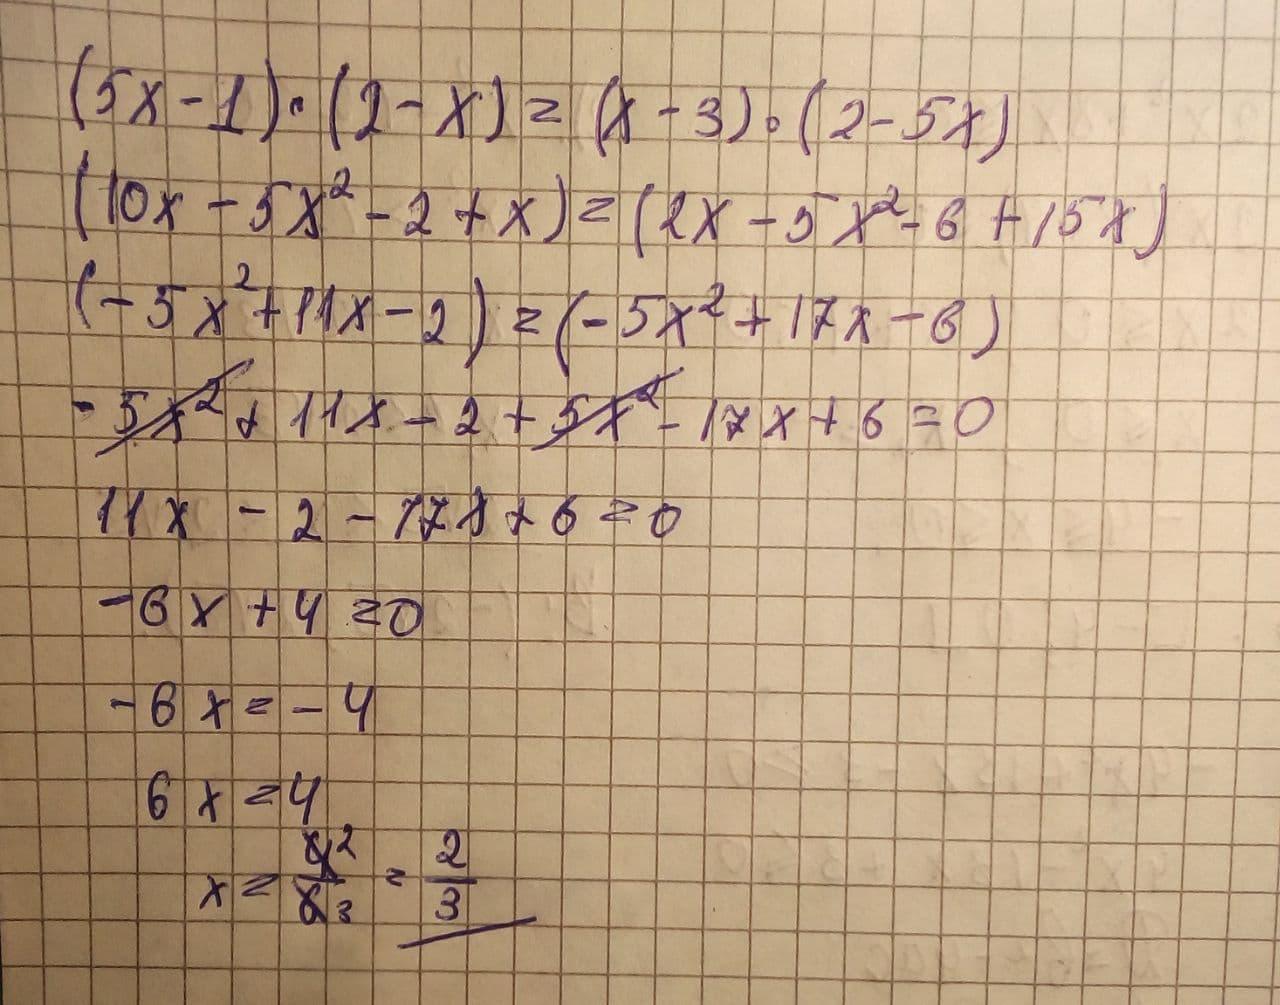 (5x-1)·(2-x)=(x-3)·(2-5x)
(10x-5x²-2+x)=(2x-5x²-6+15x)
(-5x²+11x-2)=(-5x²+17x-6)
-5x²+11x-2+5x²-17x+6=0
11x-2-17x+6=0
-6x+4=0
-6x=-4
6x=4
x=4²/6₃=2/3